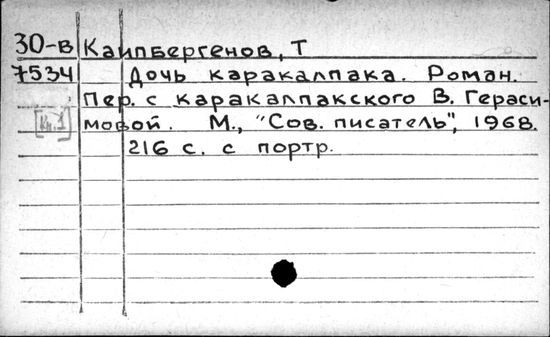 30-в Каипбергенов, Т
7534 Дочь каракалпака. Роман.
Пер. с каракалпакского В. Гераси-
[Кн.1] мовой. М., "Сов. писатель", 1968.
216 с. с портр.